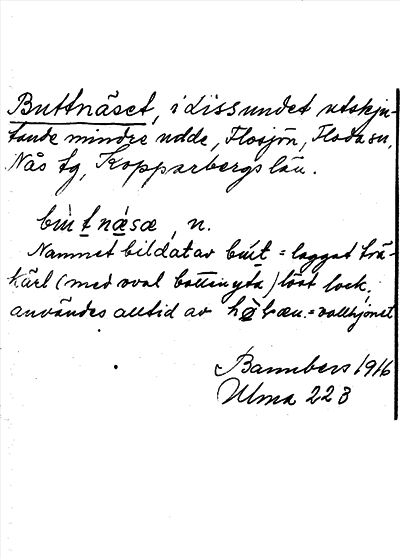 Buttnäset, i Lissundet utskju-
tande mindre udde, Flosjön, Floda sn,
Nås tg, Kopparbergs län.
bu̇t næsæ, n.
Namnet bildat av bu̇t = laggat trä-
kärl (med oval bottenyta) löst lock,
användes alltid av = vallhjonet
Bannbers 1916
Ulma 22 3